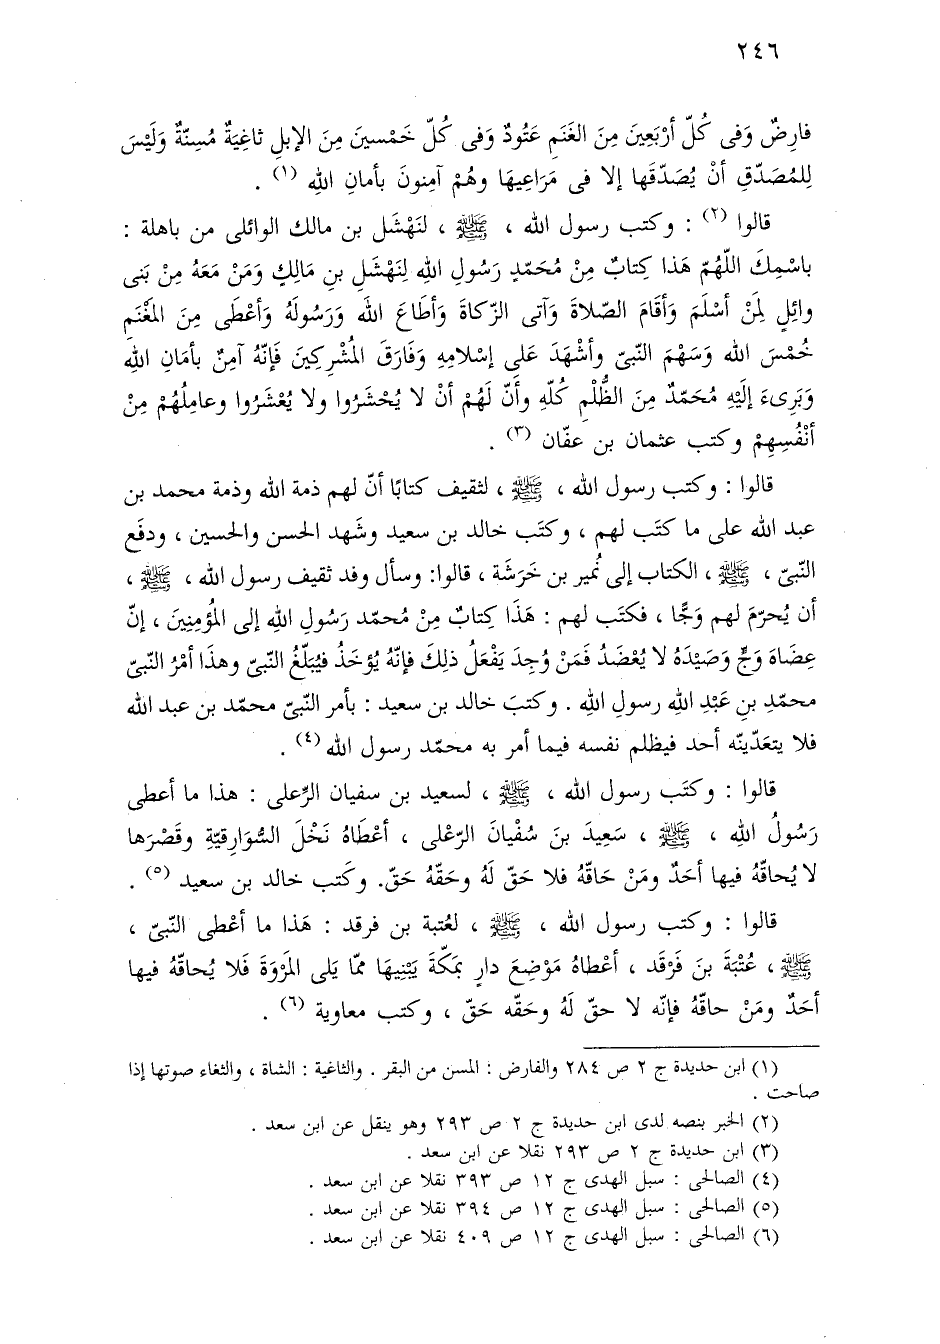 ٢٤٦
فارِضٌ وَفى كُلّ أرْبَعِينَ مِنَ الغَنَمِ عَتُودٌ وَفى كُلّ خَمْسينَ مِنَ الإبلِ ثاغِيَةٌ مُسِنّةٌ وَلَيْسَ
لِلمُصَدّقِ أنْ يُصَدّقَها إلا فى مَرَاعِيهَا وهُمْ آمِنونَ بأمانِ اللهِ (١) .
قالوا (٢) : وكتب رسول الله ، ﷺ ، لنَهْشَل بن مالك الوائلى من باهلة :
باسْمِكَ اللّهُمّ هَذا كِتابٌ مِنْ مُحَمّدٍ رَسُولِ اللهِ لِنَهْشَلِ بنِ مَالِكٍ وَمَنْ مَعَهُ مِنْ بَنى
وائِلٍ لِمَنْ أسْلَمَ وَأقَامَ الصّلاةَ وَآتى الزّكاةَ وَأطَاعَ اللهَ وَرَسُولَهُ وَأعْطَى مِنَ المَغْنَمِ
خُمْسَ الله وَسَهْمَ النّبىّ وأشْهَدَ عَلى إسْلامِهِ وَفَارَقَ المُشْرِكِينَ فَإنّهُ آمِنٌ بأمَانِ اللهِ
وَبَرِىءَ إلَيْهِ مُحَمّدٌ مِنَ الظُّلْمِ كُلّهِ وأنّ لَهُمْ أنْ لا يُحْشَرُوا ولا يُعْشَرُوا وعامِلُهُمْ مِنْ
أنْفُسِهِمْ وكتب عثمان بن عفّان (٣) .
قالوا : وكتب رسول الله ، ﷺ ، لثقيف كتابًا أنّ لهم ذمة الله وذمة محمد بن
عبد الله على ما كتَب لهم ، وكتَب خالد بن سعيد وشَهد الحسن والحسين ، ودفَع
النّبىّ ، ﷺ ، الكتاب إلى نُمير بن خَرَشَة ، قالوا: وسأل وفد ثقيف رسول الله ، ﷺ ،
أن يُحرّمَ لهم وَجًّا ، فكتَب لهم : هَذَا كِتابٌ مِنْ مُحمّد رَسُولِ اللهِ إلى المُؤمِنِينَ ، إنّ
عِضَاهَ وَجٍّ وَصَيْدَهُ لا يُعْضَدُ فَمَنْ وُجِدَ يَفْعَلُ ذلِكَ فإنّهُ يُؤخَذُ فيُبَلّغُ النّبىّ وهذَا أمْرُ النّبىّ
محمّدِ بنِ عَبْدِ اللهِ رسولِ اللهِ . وكتبَ خالد بن سعيد : بأمر النّبىّ محمّد بن عبد الله
فلا يتعَدّينّه أحد فيظلم نفسه فيما أمر به محمّد رسول الله (٤) .
قالوا : وكتَب رسول الله ، ﷺ ، لسعيد بن سفيان الرِّعلى : هذا ما أعطى
رَسُولُ اللهِ ، ﷺ ، سَعِيدَ بنَ سُفْيانَ الرّعْلى ، أعْطَاهُ نَخْلَ السُّوَارِقيّةِ وقَصْرَها
لا يُحاقّهُ فيها أحَدٌ ومَنْ حَاقّهُ فلا حَقّ لَهُ وحَقّهُ حَقّ. وكَتب خالد بن سعيد (٥) .
قالوا : وكتب رسول الله ، ﷺ ، لعُتبة بن فرقد : هَذا ما أعْطى النّبىّ ،
ﷺ ، عُتْبَةَ بنَ فَرْقَد ، أعْطاهُ مَوْضِعَ دارٍ بمَكّةَ يَبْنِيهَا ممّا يَلى المَرْوَةَ فَلا يُحاقّهُ فيها
أحَدٌ ومَنْ حاقّهُ فإنّه لا حقّ لَهُ وحَقّه حَقّ ، وكتب معاوية (٦) .
(١) ابن حديدة ج ٢ ص ٢٨٤ والفارض : المسن من البقر . والثاغية : الشاة ، والثغاء صوتها إذا
صاحت .
(٢) الخبر بنصه لدى ابن حديدة ج ٢ ص ٢٩٣ وهو ينقل عن ابن سعد .
(٣) ابن حديدة ج ٢ ص ٢٩٣ نقلا عن ابن سعد .
(٤) الصالحى : سبل الهدى ج ١٢ ص ٣٩٣ نقلا عن ابن سعد .
(٥) الصالحى : سبل الهدى ج ١٢ ص ٣٩٤ نقلا عن ابن سعد .
(٦) الصالحى : سبل الهدى ج ١٢ ص ٤٠٩ نقلا عن ابن سعد .